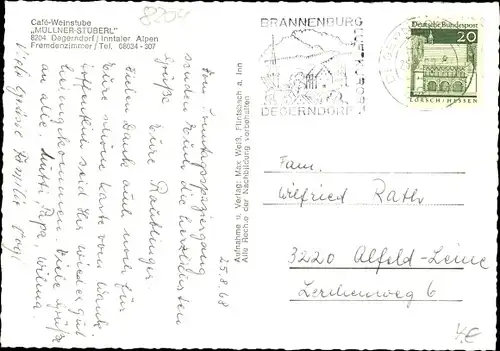 8204
Café-Weinstube
"MÜLLNER-STÜBERL"
8204 Degerndorf / Inntaler Alpen
Fremdenzimmer / Tel. 08034 - 307
BRANNENBURG
DEGERNDORF
Deutsche Bundespost
20
LORSCH/HESSEN
25.8.68
Vom Sonntagsspaziergang
senden Euch die herzlichsten
Grüße
Eure Raublinger.
Vielen Dank auch noch für
Eure schöne Karte vom Wank.
Hoffentlich seid Ihr wieder gut
heimgekommen. Liebe Grüße
an alle, Mutti, Papa, Wilma.
Viele Grüße Familie
Aufnahme u. Verlag: Max Weiß, Flintsbach a. Inn
Alle Rechte der Nachbildung vorbehalten
Fam.
Wilfried Rath
3220 Alfeld-Leine
Lerchenweg 6